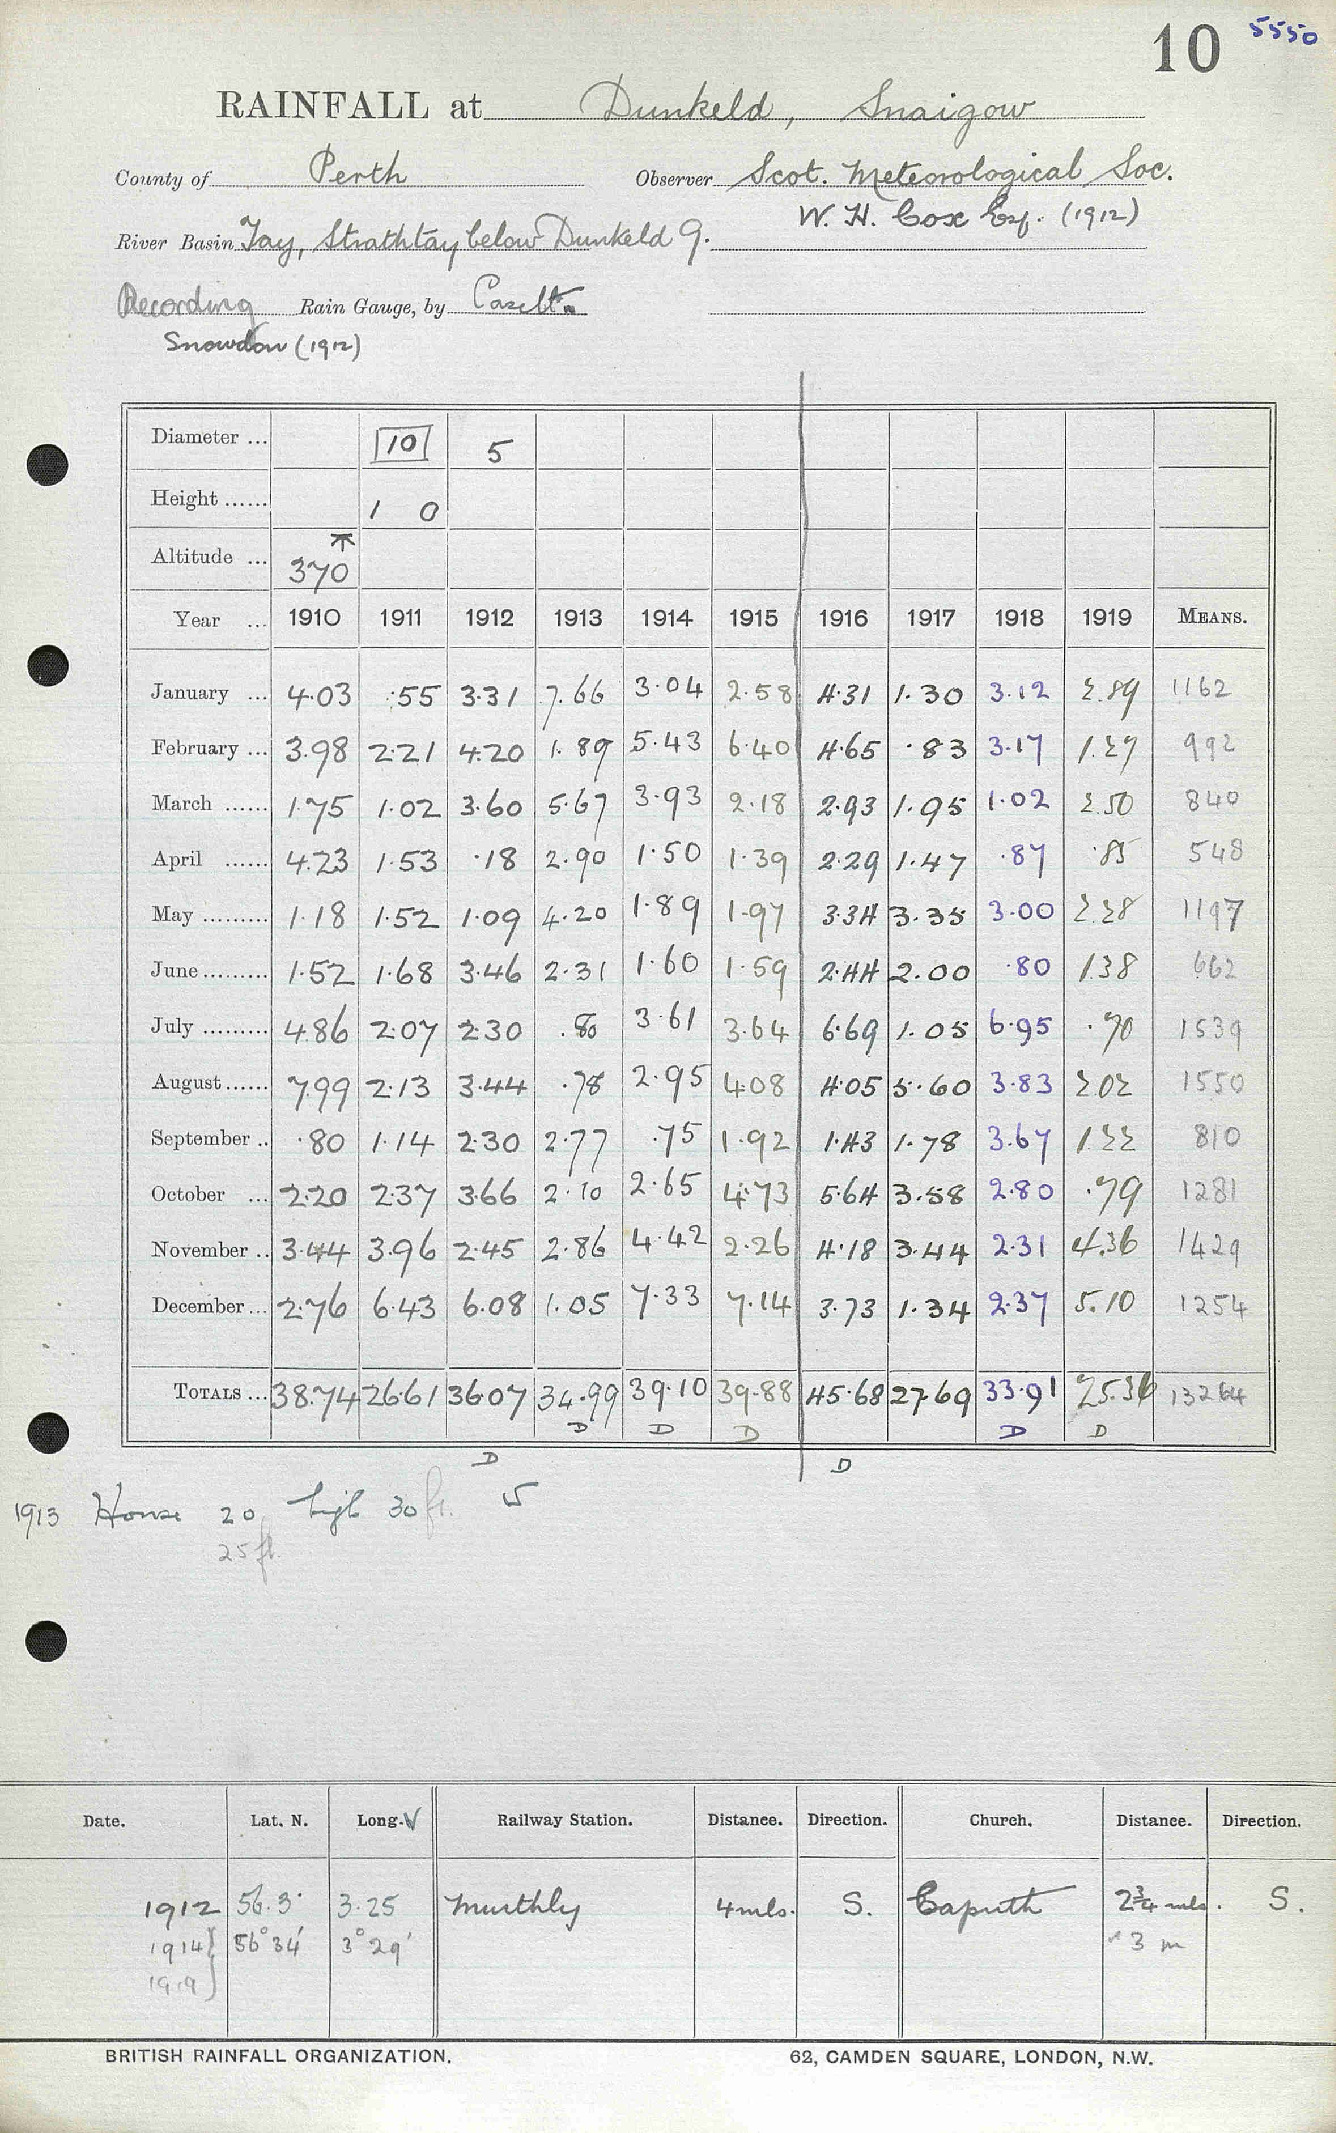 10 5550
RAINFALL at Dunkeld, Snaigow
County of Perth Observer Scot. Meteorological Soc.
W. H. Cox Esq. (1912)
River Basin Tay, Strathtay below Dunkeld 9.
Recording Rain Gauge, by Casella
Snowdon (1912)
Diameter ... 10 5
Height ...... 1 0
Altitude ... 370
Year ... 1910 1911 1912 1913 1914 1915 1916 1917 1918 1919 MEANS.
January ... 4.03 .55 3.31 7.66 3.04 2.58 4.31 1.30 3.12 2.89 1162
February ... 3.98 2.21 4.20 1.89 5.43 6.40 4.65 .83 3.17 1.27 992
March ...... 1.75 1.02 3.60 5.67 3.93 2.18 2.93 1.95 1.02 2.50 840
April ...... 4.23 1.53 .18 2.90 1.50 1.39 2.29 1.47 .87 .85 548
May ......... 1.18 1.52 1.09 4.20 1.89 1.97 3.34 3.35 3.00 2.28 1197
June ......... 1.52 1.68 3.46 2.31 1.60 1.59 2.44 2.00 .80 1.38 662
July ......... 4.86 2.07 2.30 .80 3.61 3.64 6.69 1.05 6.95 .70 1539
August ...... 7.99 2.13 3.44 .78 2.95 4.08 4.05 5.60 3.83 2.02 1550
September .. .80 1.14 2.30 2.77 .75 1.92 1.43 1.78 3.67 1.22 810
October ... 2.20 2.37 3.66 2.10 2.65 4.73 5.64 3.58 2.80 .79 1281
November .. 3.44 3.96 2.45 2.86 4.42 2.26 4.18 3.44 2.31 4.36 1429
December ... 2.76 6.43 6.08 1.05 7.33 7.14 3.73 1.34 2.37 5.10 1254
TOTALS ... 38.74 26.61 36.07 34.99 39.10 39.88 45.68 27.69 33.91 25.36 13264
D D D D D
D D
1913 House 20 high 30 ft. 5
25 ft.
Date. Lat. N. Long. W Railway Station. Distance. Direction. Church. Distance. Direction.
1912 56.3' 3.25 Murthly 4 mls. S. Caputh 2¾ mls. S.
1914} 56°34' 3°29' 3 m
1919}
BRITISH RAINFALL ORGANIZATION. 62, CAMDEN SQUARE, LONDON, N.W.